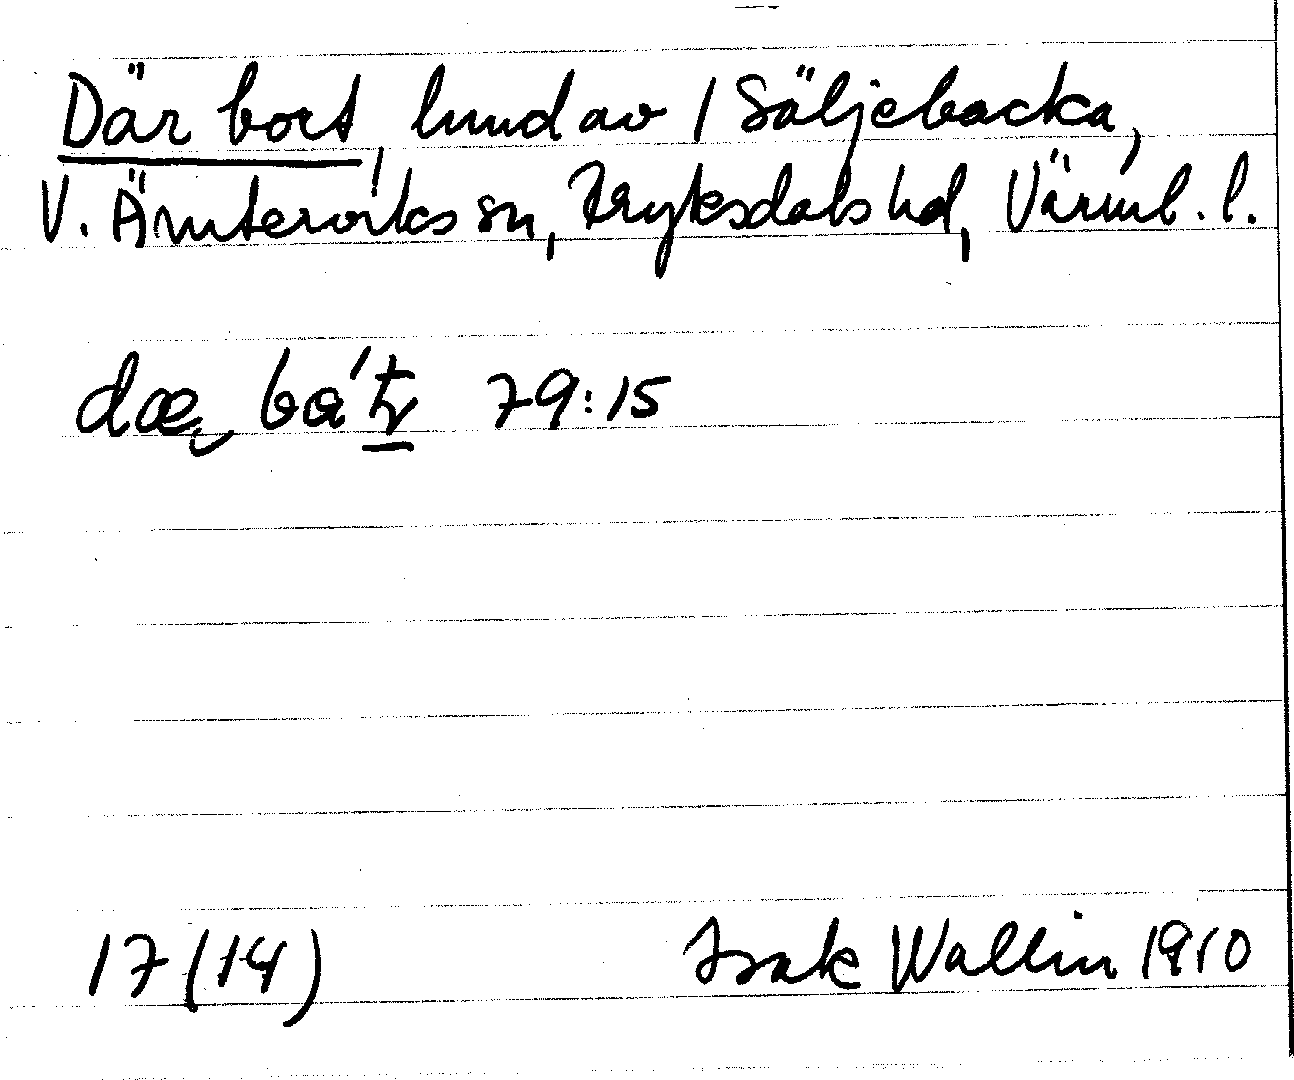 Där bort, hmd av 1 Säljebacka,
V. Ämterviks sn, Fryksdals hd, Värml. l.
dæ ba't 79:15
17 (14) Isak Wallin 1910